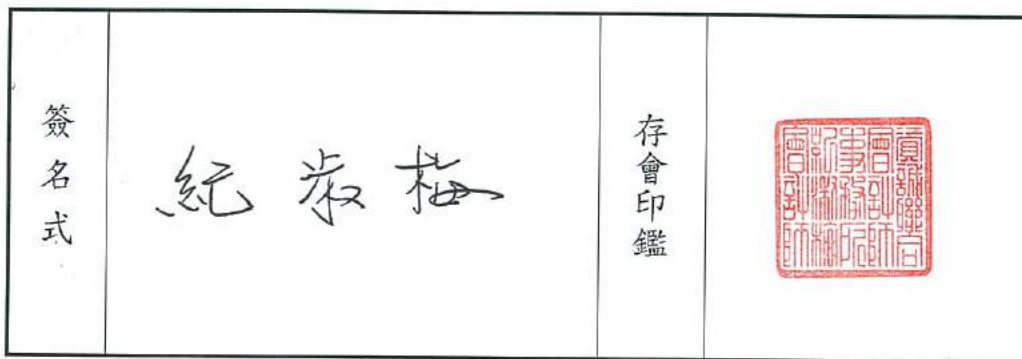 簽名式
紀淑梅
存會印鑑
資誠聯合
會計師
事務所
紀淑梅
會計師